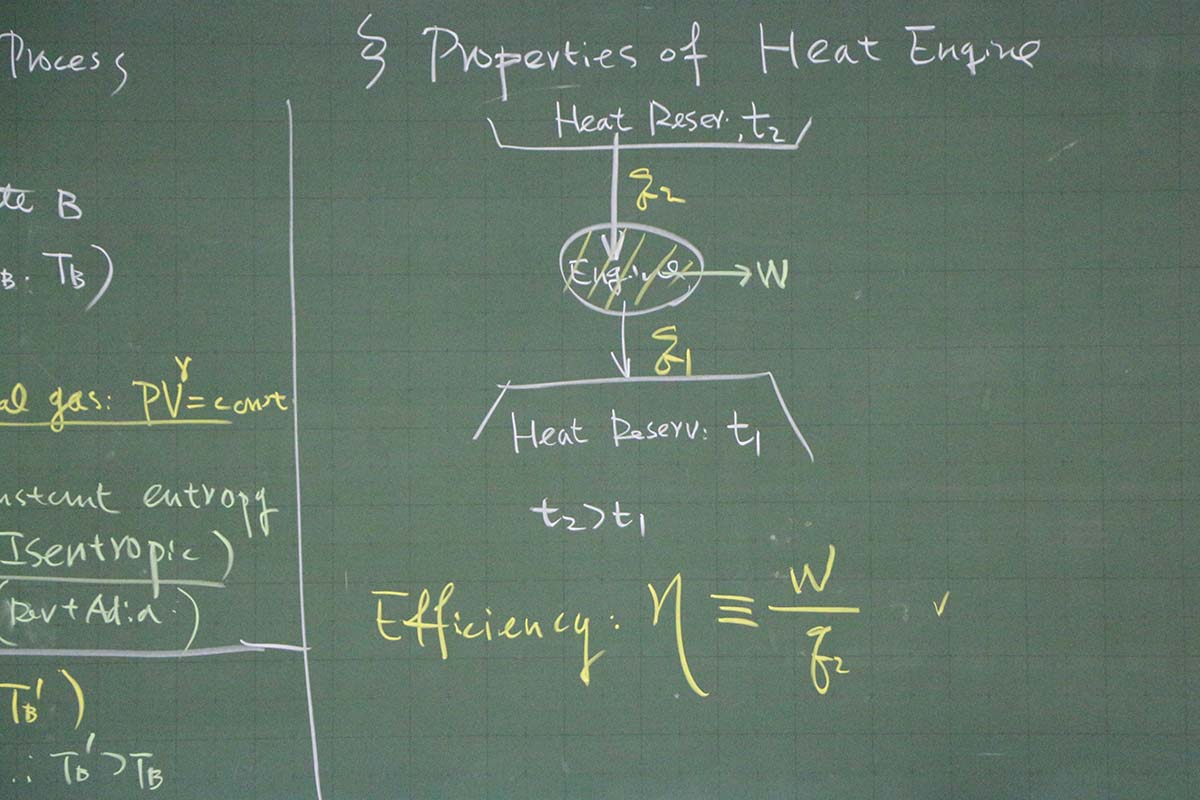 Process
B
TB)
gas: PV^γ = const
entropy
Isentropic)
(Rev + Adia.)
TB')
∴ TB' > TB
§ Properties of Heat Engine
Heat Reser. t₂
q₂
Engine → W
q₁
Heat Reserv: t₁
t₂ > t₁
Efficiency: η ≡ W / q₂ ✓